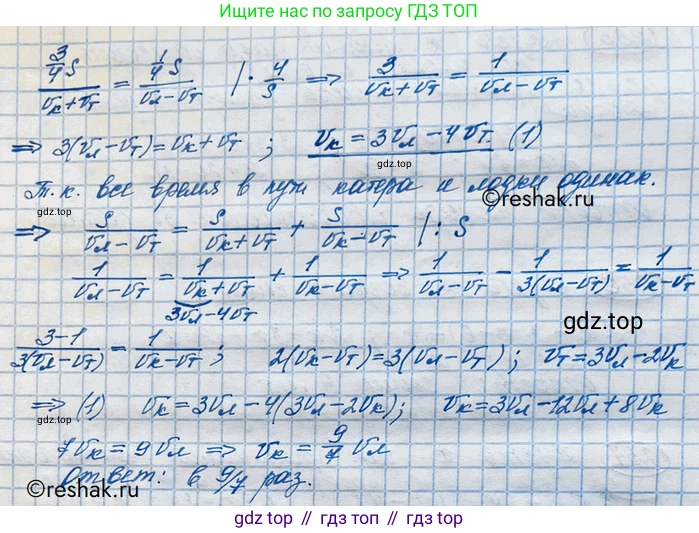 Ищите нас по запросу ГДЗ ТОП
(3/4 S)/(Vк+Vт) = (1/4 S)/(Vл−Vт) | · 4/S ⇒ 3/(Vк+Vт) = 1/(Vл−Vт)
⇒ 3(Vл−Vт)=Vк+Vт ; Vк = 3Vл−4Vт. (1)
gdz.top
Т.к. все время в пути катера и лодки одинак.
gdz.top
©reshak.ru
⇒ S/(Vл−Vт) = S/(Vк+Vт) + S/(Vк−Vт) | : S
1/(Vл−Vт) = 1/(Vк+Vт) + 1/(Vк−Vт) ⇒ 1/(Vл−Vт) − 1/(3(Vл−Vт)) = 1/(Vк−Vт)
3Vл−4Vт
gdz.top
(3−1)/(3(Vл−Vт)) = 1/(Vк−Vт) ; 2(Vк−Vт)=3(Vл−Vт) ; Vт=3Vл−2Vк
⇒ (1) Vк=3Vл−4(3Vл−2Vк); Vк=3Vл−12Vл+8Vк
7Vк = 9Vл ⇒ Vк = 9/7 Vл
Ответ: в 9/7 раз.
©reshak.ru
gdz top // гдз топ // gdz.top // гдз.топ